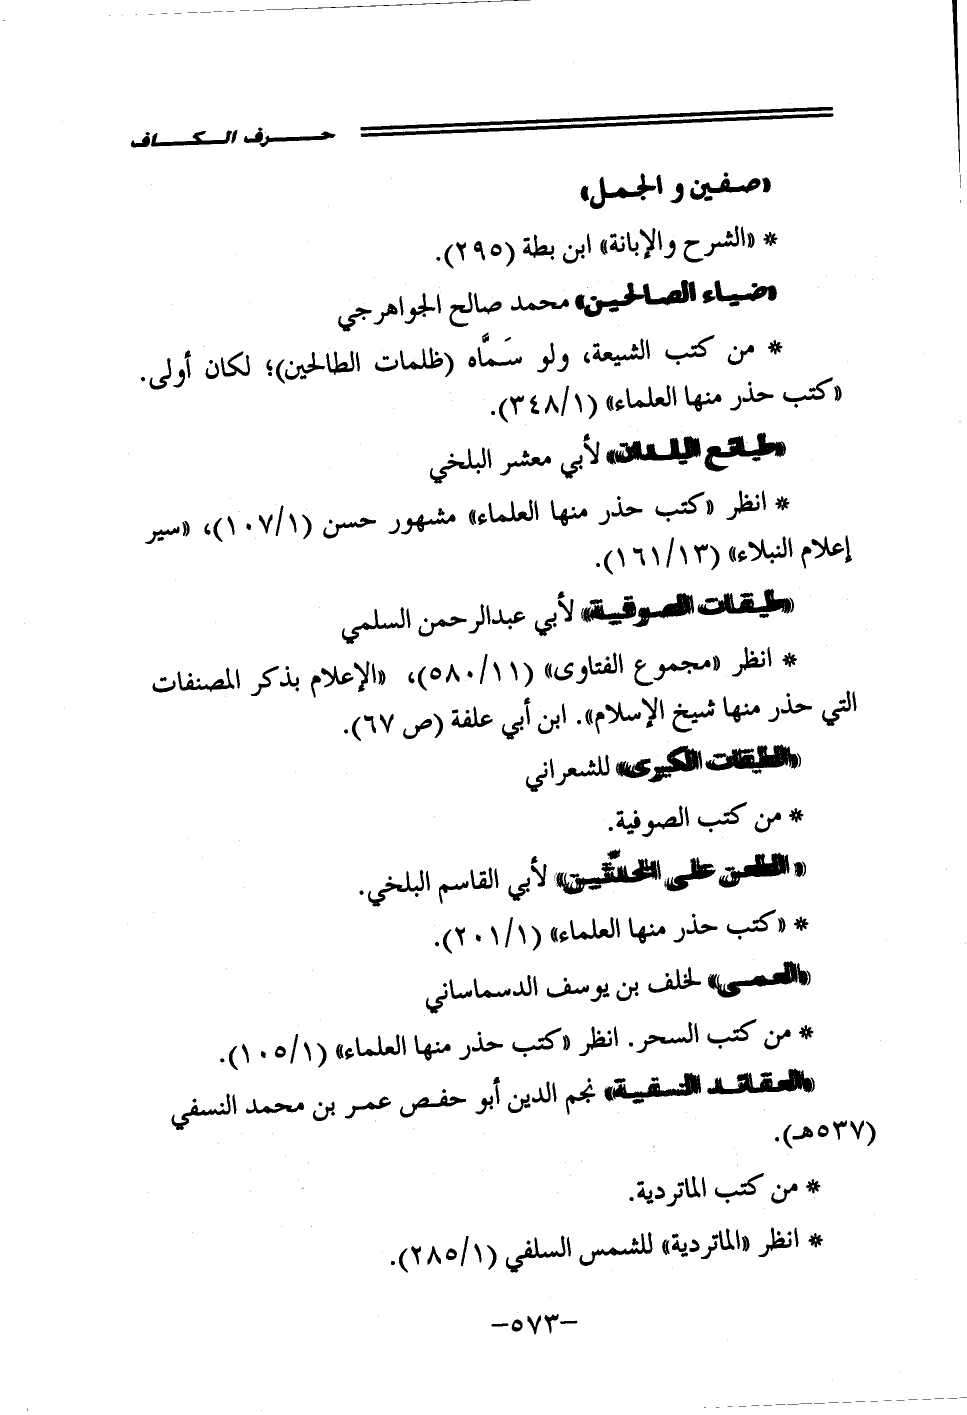 حـــــرف الـــكـــــاف
«صـفـين و الجـمـل»
* «الشرح والإبانة» ابن بطة (٢٩٥).
«ضـيـاء الصـالحـيـن» محمد صالح الجواهرجي
* من كتب الشيعة، ولو سَمَّاه (ظلمات الطالحين)؛ لكان أولى.
«كتب حذر منها العلماء» (٣٤٨/١).
«طـبـائـع البلـدان» لأبي معشر البلخي
* انظر «كتب حذر منها العلماء» مشهور حسن (١٠٧/١)، «سير
إعلام النبلاء» (١٦١/١٣).
«طبـقـات الصـوفيـة» لأبي عبدالرحمن السلمي
* انظر «مجموع الفتاوى» (٥٨٠/١١)، «الإعلام بذكر المصنفات
التي حذر منها شيخ الإسلام». ابن أبي علفة (ص ٦٧).
«الطبقات الكبرى» للشعراني
* من كتب الصوفية.
«الطعـن علـى المحدِّثيـن» لأبي القاسم البلخي.
* «كتب حذر منها العلماء» (٢٠١/١).
«العـمـى» لخلف بن يوسف الدسماساني
* من كتب السحر. انظر «كتب حذر منها العلماء» (١٠٥/١).
«العـقـائـد النسـفيـة» نجم الدين أبو حفـص عمـر بن محمد النسفي
(٥٣٧هـ).
* من كتب الماتردية.
* انظر «الماتردية» للشمس السلفي (٢٨٥/١).
-٥٧٣-